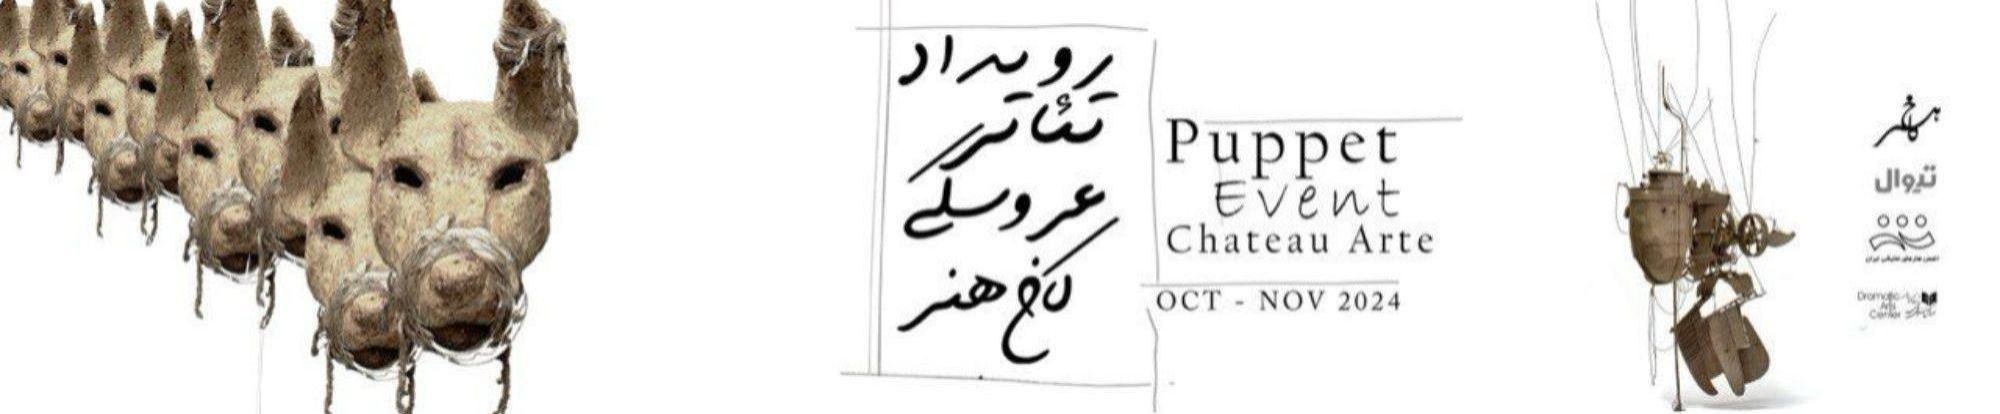 رویداد
تئاتر
عروسکی
کاخ هنر
Puppet
Event
Chateau Arte
OCT - NOV 2024
تیوال
انجمن هنرهای نمایشی ایران
Dramatic
Arts
Center